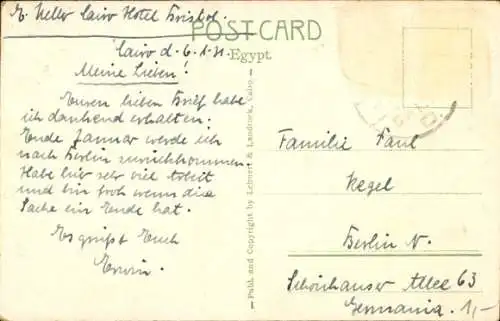 E. Keller Cairo Hotel Bristol.
POSTCARD
Egypt.
Cairo d. 6.1.31.
Meine Lieben!
Euren lieben Brief habe
ich dankend erhalten.
Ende Januar werde ich
nach Berlin zurückkommen.
Habe hier sehr viel Arbeit
und bin froh wenn die
Sache ein Ende hat.
Es grüßt Euch
Erwin.
Publ. and Copyright by Lehnert & Landrock, Cairo.
Familie Paul
Kegel
Berlin N.
Schönhauser Allee 63
Germania. 1,-